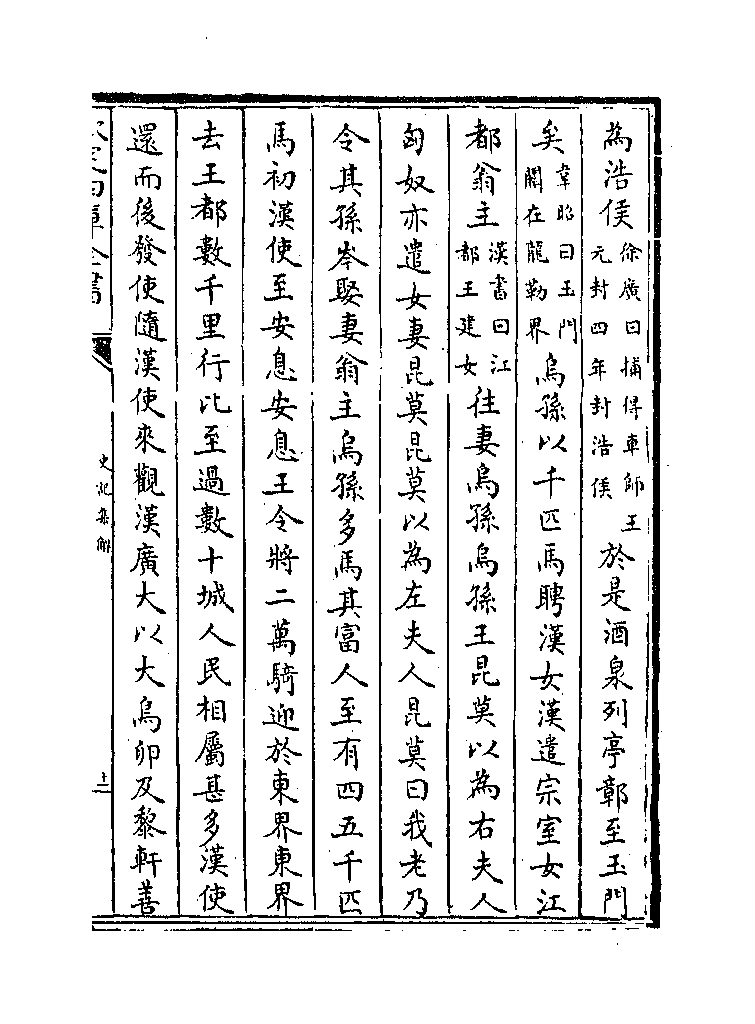 為浩侯徐廣曰捕得車師王元封四年封浩侯於是酒泉列亭鄣至玉門
矣韋昭曰玉門關在龍勒界烏孫以千匹馬聘漢女漢遣宗室女江
都翁主漢書曰江都王建女往妻烏孫烏孫王昆莫以為右夫人
匈奴亦遣女妻昆莫昆莫以為左夫人昆莫曰我老乃
令其孫岑娶妻翁主烏孫多馬其富人至有四五千匹
馬初漢使至安息安息王令將二萬騎迎於東界東界
去王都數千里行比至過數十城人民相屬甚多漢使
還而後發使隨漢使來觀漢廣大以大鳥卵及黎軒善
欽定四庫全書
史記集解
十二